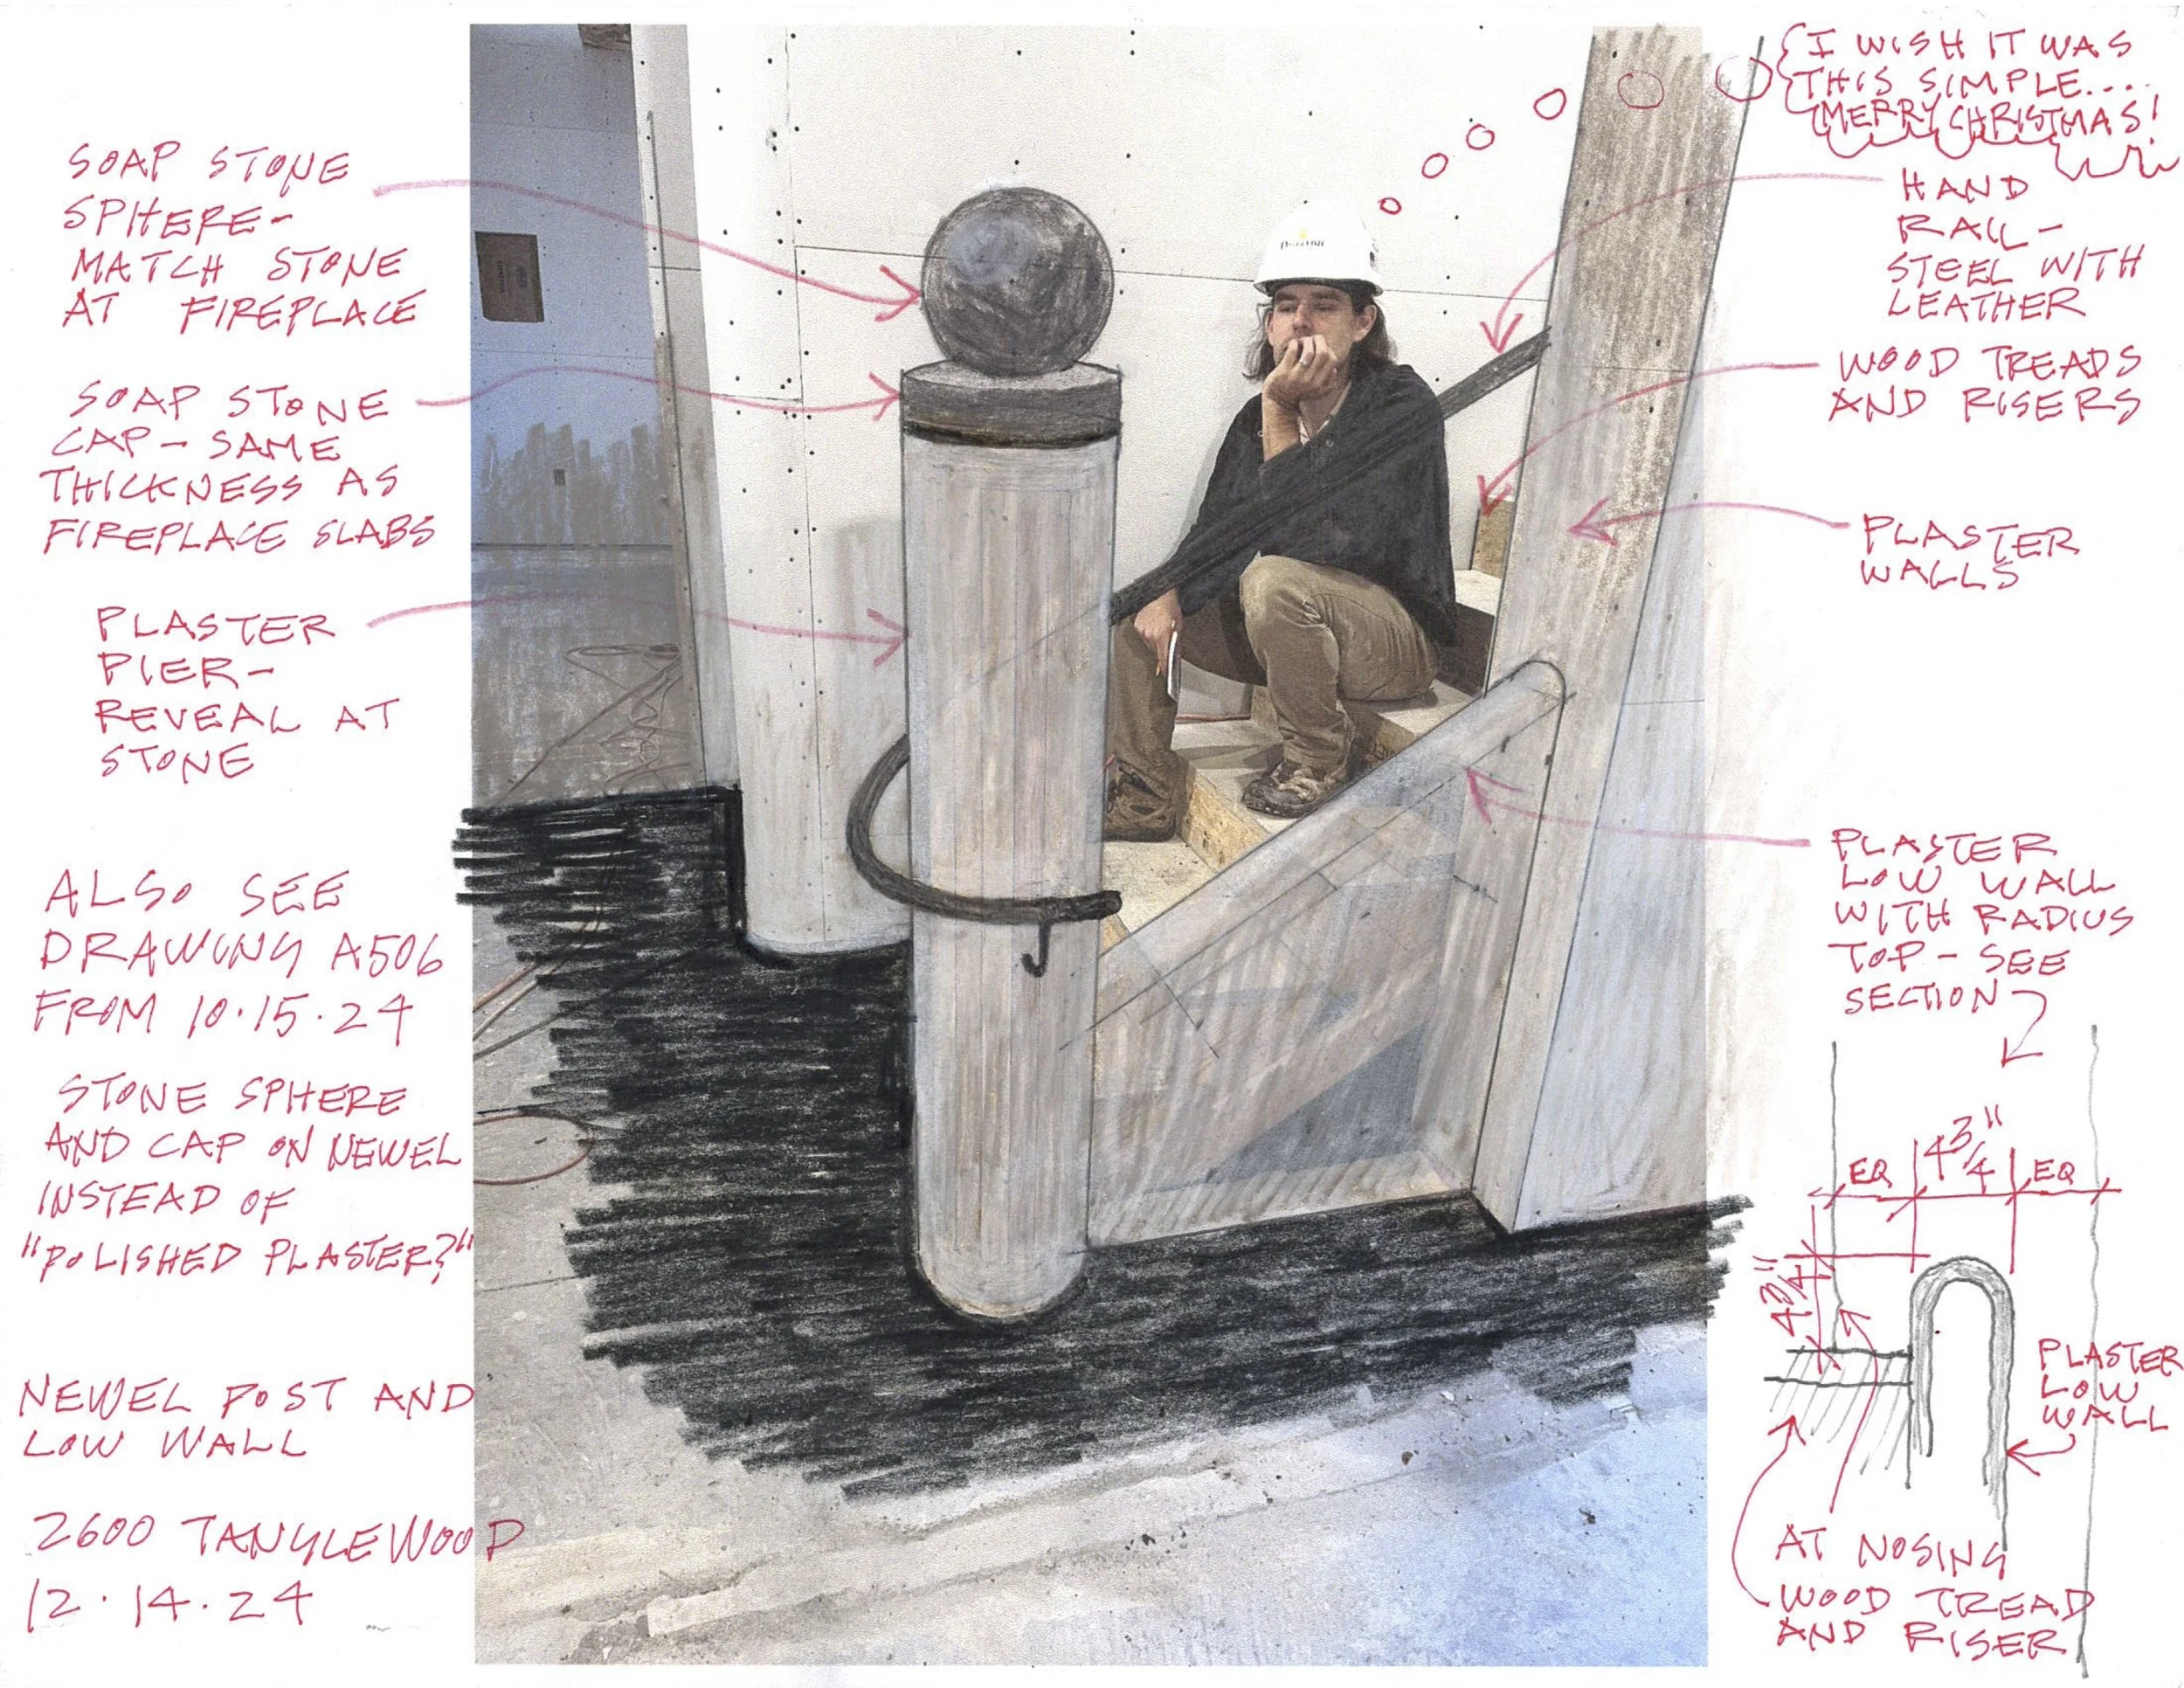 SOAP STONE
SPHERE-
MATCH STONE
AT FIREPLACE
SOAP STONE
CAP - SAME
THICKNESS AS
FIREPLACE SLABS
PLASTER
PIER-
REVEAL AT
STONE
ALSO SEE
DRAWING A506
FROM 10.15.24
STONE SPHERE
AND CAP ON NEWEL
INSTEAD OF
"POLISHED PLASTER?"
NEWEL POST AND
LOW WALL
2600 TANGLEWOOD
12.14.24
I WISH IT WAS
THIS SIMPLE....
MERRY CHRISTMAS!
HAND
RAIL-
STEEL WITH
LEATHER
WOOD TREADS
AND RISERS
PLASTER
WALLS
PLASTER
LOW WALL
WITH RADIUS
TOP - SEE
SECTION
EQ 4 3/4" EQ
4 3/4"
PLASTER
LOW
WALL
AT NOSING
WOOD TREAD
AND RISER